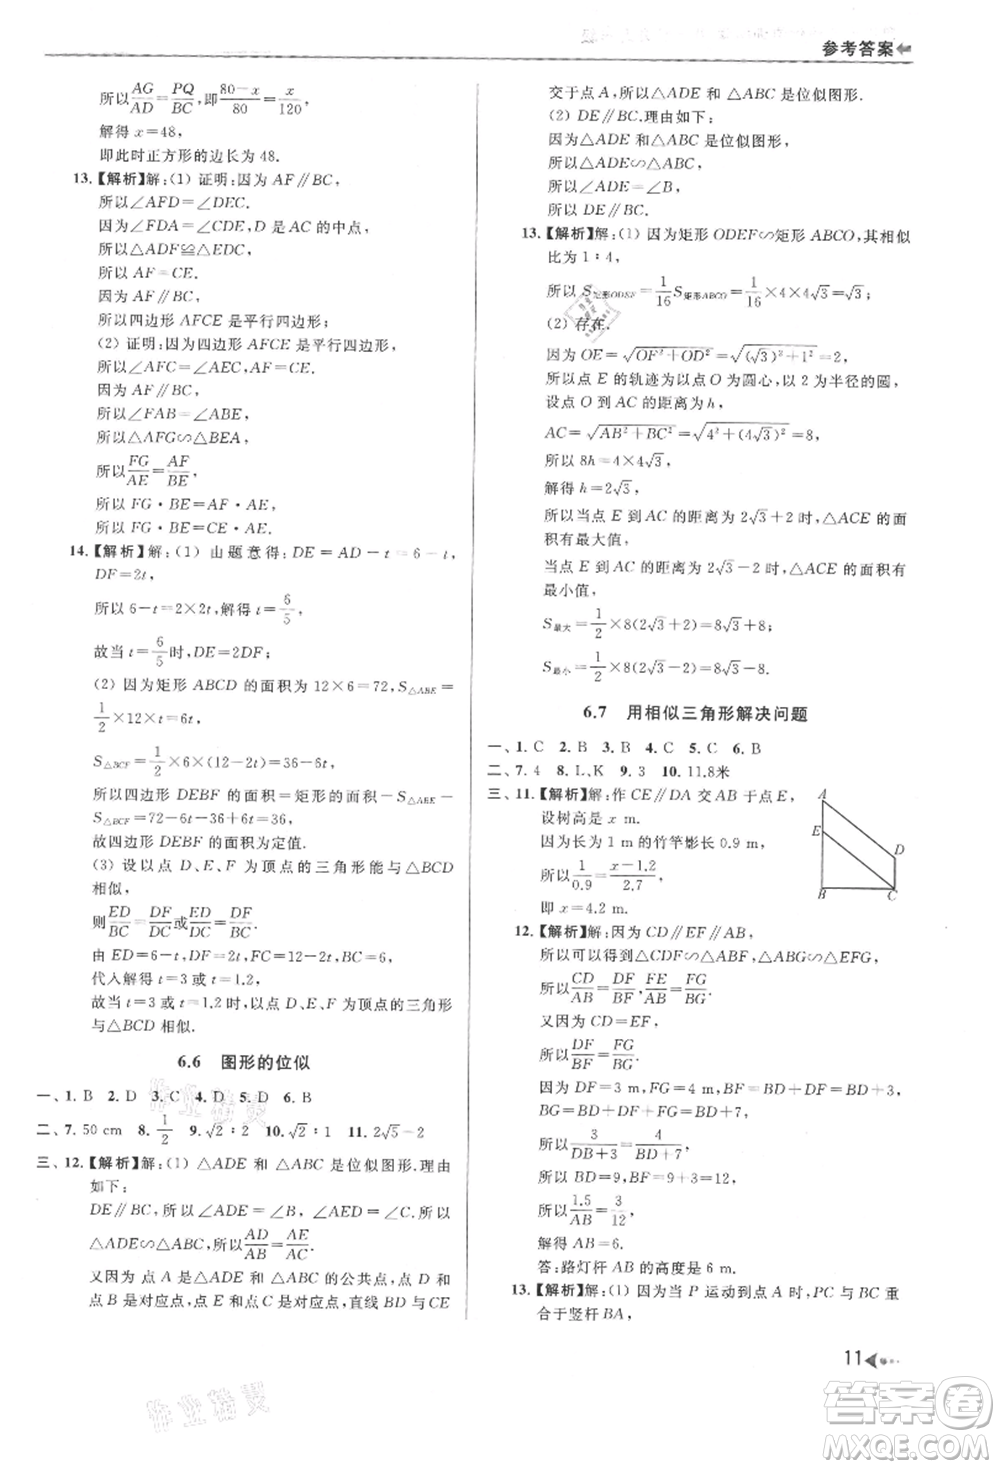 参考答案
所以AG/AD=PQ/BC,即(80-x)/80=x/120,
解得 x=48,
即此时正方形的边长为 48.
13.【解析】解:(1) 证明:因为 AF∥BC,
所以∠AFD=∠DEC.
因为∠FDA=∠CDE,D 是 AC 的中点,
所以△ADF≌△CDE,
所以 AF=CE.
因为 AF∥EC,
所以四边形 AFCE 是平行四边形;
(2) 证明:因为四边形 AFCE 是平行四边形,
所以∠AFC=∠AEC,AF=CE.
因为 AF∥BC,
所以∠FAB=∠ABE,
所以△AFG∽△BEA,
所以FG/AE=AF/BE,
所以 FG·BE=AF·AE,
所以 FG·BE=CE·AE.
14.【解析】解:(1) 由题意得:DE=AD-t=6-t,
DF=2t,
所以 6-t=2×2t,解得 t=6/5,
故当 t=6/5时,DE=2DF;
(2) 因为矩形 ABCD 的面积为 12×6=72,S△ABE=
1/2×12×t=6t,
S△BCF=1/2×6×(12-2t)=36-6t,
所以四边形 DEBF 的面积=矩形的面积-S△ABE-
S△BCF=72-6t-36+6t=36,
故四边形 DEBF 的面积为定值.
(3) 设以点 D、E、F 为顶点的三角形能与△BCD
相似,
则ED/BC=DF/DC或ED/DC=DF/BC,
由 ED=6-t,DF=2t,FC=12-2t,BC=6.
代入解得 t=3 或 t=1.2,
故当 t=3 或 t=1.2 时,以点 D、E、F 为顶点的三角形
与△BCD 相似.
6.6 图形的位似
一、1. B 2. D 3. C 4. D 5. D 6. B
二、7. 50 cm 8. 1/2 9. √2∶2 10. √2∶1 11. 2√5-2
三、12.【解析】解:(1) △ADE 和△ABC 是位似图形.理由
如下:
DE∥BC,所以∠ADE=∠B,∠AED=∠C.所以
△ADE∽△ABC,所以AD/AB=AE/AC.
又因为 点 A 是△ADE 和△ABC 的公共点,点 D 和
点 B 是对应点,点 E 和点 C 是对应点,直线 BD 与 CE
交于点 A,所以△ADE 和 △ABC 是位似图形.
(2) DE∥BC.理由如下:
因为△ADE 和△ABC 是位似图形,
所以△ADE∽△ABC,
所以∠ADE=∠B,
所以 DE∥BC.
13.【解析】解:(1) 因为矩形 ODEF∽矩形 ABCO,其相似
比为 1∶4,
所以 S矩形ODEF=1/16S矩形ABCO=1/16×4×4√3=√3;
(2) 存在.
因为 OE=√(OF²+OD²)=√((√3)²+1²)=2,
所以点 E 的轨迹为以点 O 为圆心,以 2 为半径的圆,
设点 O 到 AC 的距离为 h,
AC=√(AB²+BC²)=√(4²+(4√3)²)=8,
所以 8h=4×4√3,
解得 h=2√3,
所以当点 E 到 AC 的距离为 2√3+2 时,△ACE 的面
积有最大值,
当点 E 到 AC 的距离为 2√3-2 时,△ACE 的面积有
最小值,
S最大=1/2×8(2√3+2)=8√3+8;
S最小=1/2×8(2√3-2)=8√3-8.
6.7 用相似三角形解决问题
一、1. C 2. B 3. B 4. C 5. C 6. B
二、7. 4 8. L、K 9. 3 10. 11.8米
三、11.【解析】解:作 CE∥DA 交 AB 于点 E,
设树高是 x m.
因为长为 1 m 的竹竿影长 0.9 m,
所以1/0.9=(x-1.2)/2.7,
即 x=4.2 m.
A
E
D
B
C
12.【解析】解:因为 CD∥EF∥AB,
所以可以得到△CDF∽△ABF,△ABG∽△EFG,
所以CD/AB=DF/BF,FE/AB=FG/BG.
又因为 CD=EF,
所以DF/BF=FG/BG.
因为 DF=3 m,FG=4 m,BF=BD+DF=BD+3,
BG=BD+DF+FG=BD+7,
所以3/(DB+3)=4/(BD+7),
所以 BD=9,BF=9+3=12,
所以1.5/AB=3/12,
解得 AB=6.
答:路灯杆 AB 的高度是 6 m.
13.【解析】解:(1) 因为当 P 运动到点 A 时,PC 与 BC 重
合于竖杆 BA,
11
作业精灵
作业精灵
答案圈
MXQE.COM